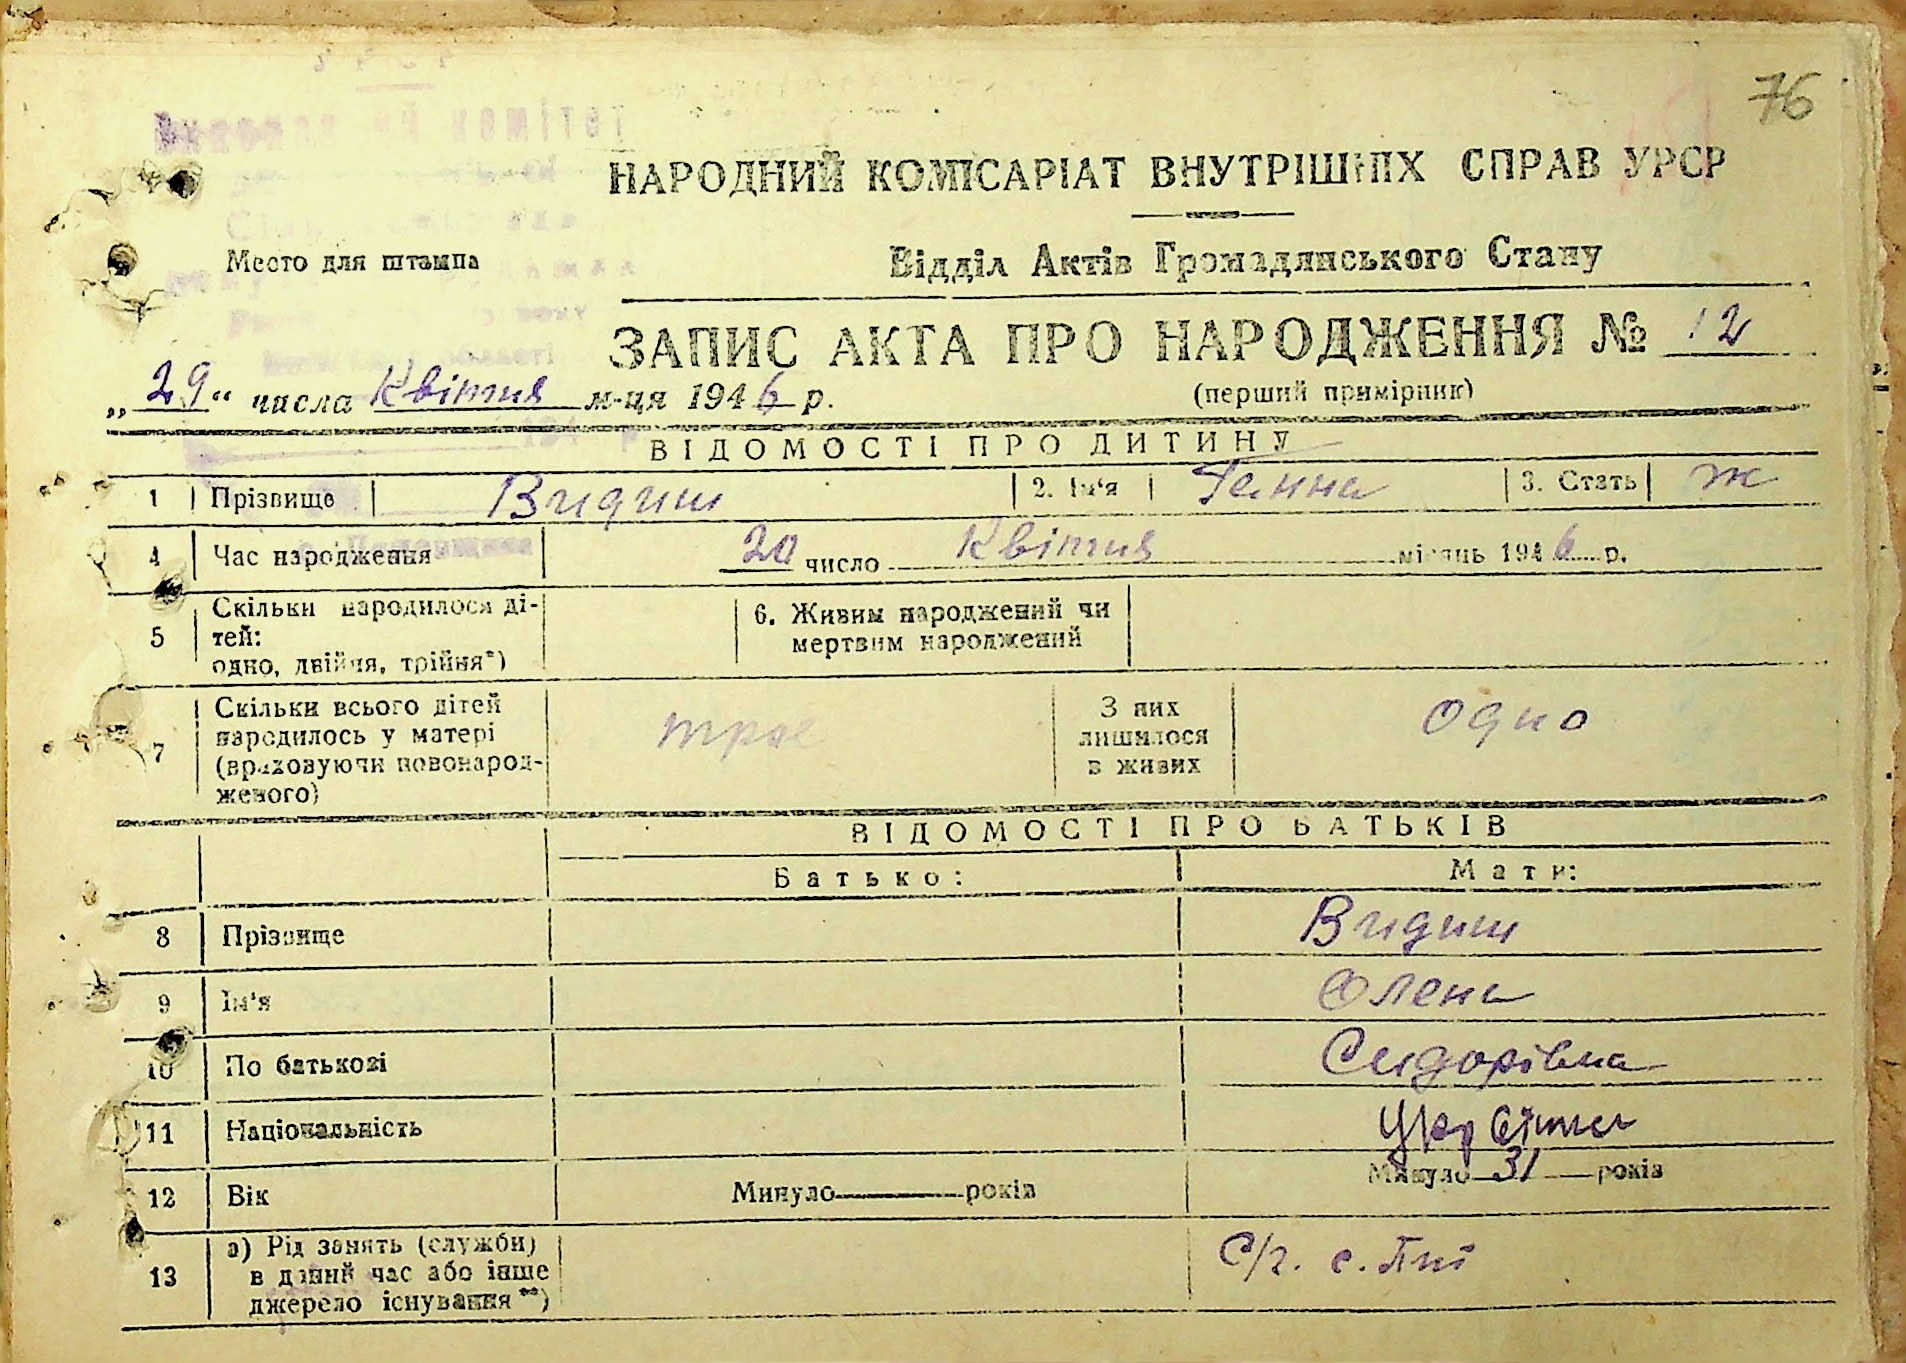 76
НАРОДНИЙ КОМІСАРІАТ ВНУТРІШНІХ СПРАВ УРСР
Место для штампа
Відділ Актів Громадянського Стану
ЗАПИС АКТА ПРО НАРОДЖЕННЯ № 12
„29“ числа Квітня м-ця 1946 р.
(перший примірник)
ВІДОМОСТІ ПРО ДИТИНУ
1 Прізвище Видиш 2. Ім‘я Ганна 3. Стать ж
4 Час народження 20 число Квітня місяць 1946 р.
5 Скільки народилося ді-
тей:
одно, двійня, трійня*)
6. Живим народжений чи
мертвим народжений
7 Скільки всього дітей
народилось у матері
(враховуючи новонарод-
женого)
троє
З них
лишилося
в живих
одно
ВІДОМОСТІ ПРО БАТЬКІВ
Батько: Мати:
8 Прізвище Видиш
9 Ім‘я Олена
10 По батькові Сидорівна
11 Національність
12 Вік Минуло років Минуло 31 років
13 а) Рід занять (служби)
в даний час або інше
джерело існування**)
С/г. с.